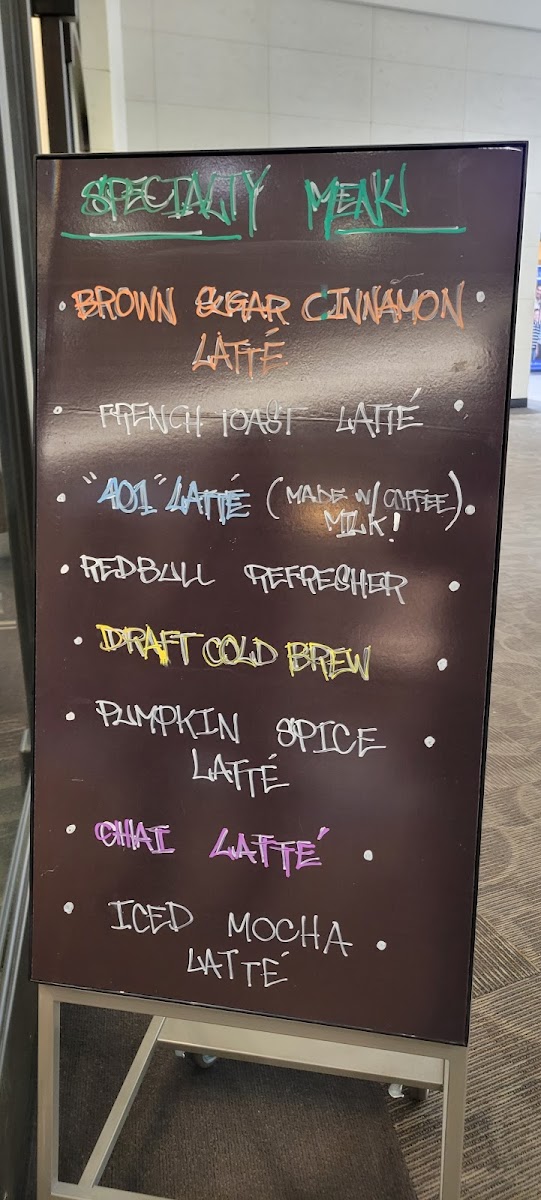 SPECIALTY MENU
• BROWN SUGAR CINNAMON •
LATTÉ
• FRENCH TOAST LATTÉ •
• "401" LATTÉ (MADE W/ COFFEE) •
MILK!
• REDBULL REFRESHER •
• DRAFT COLD BREW •
• PUMPKIN SPICE •
LATTÉ
• CHAI LATTÉ •
• ICED MOCHA •
LATTÉ